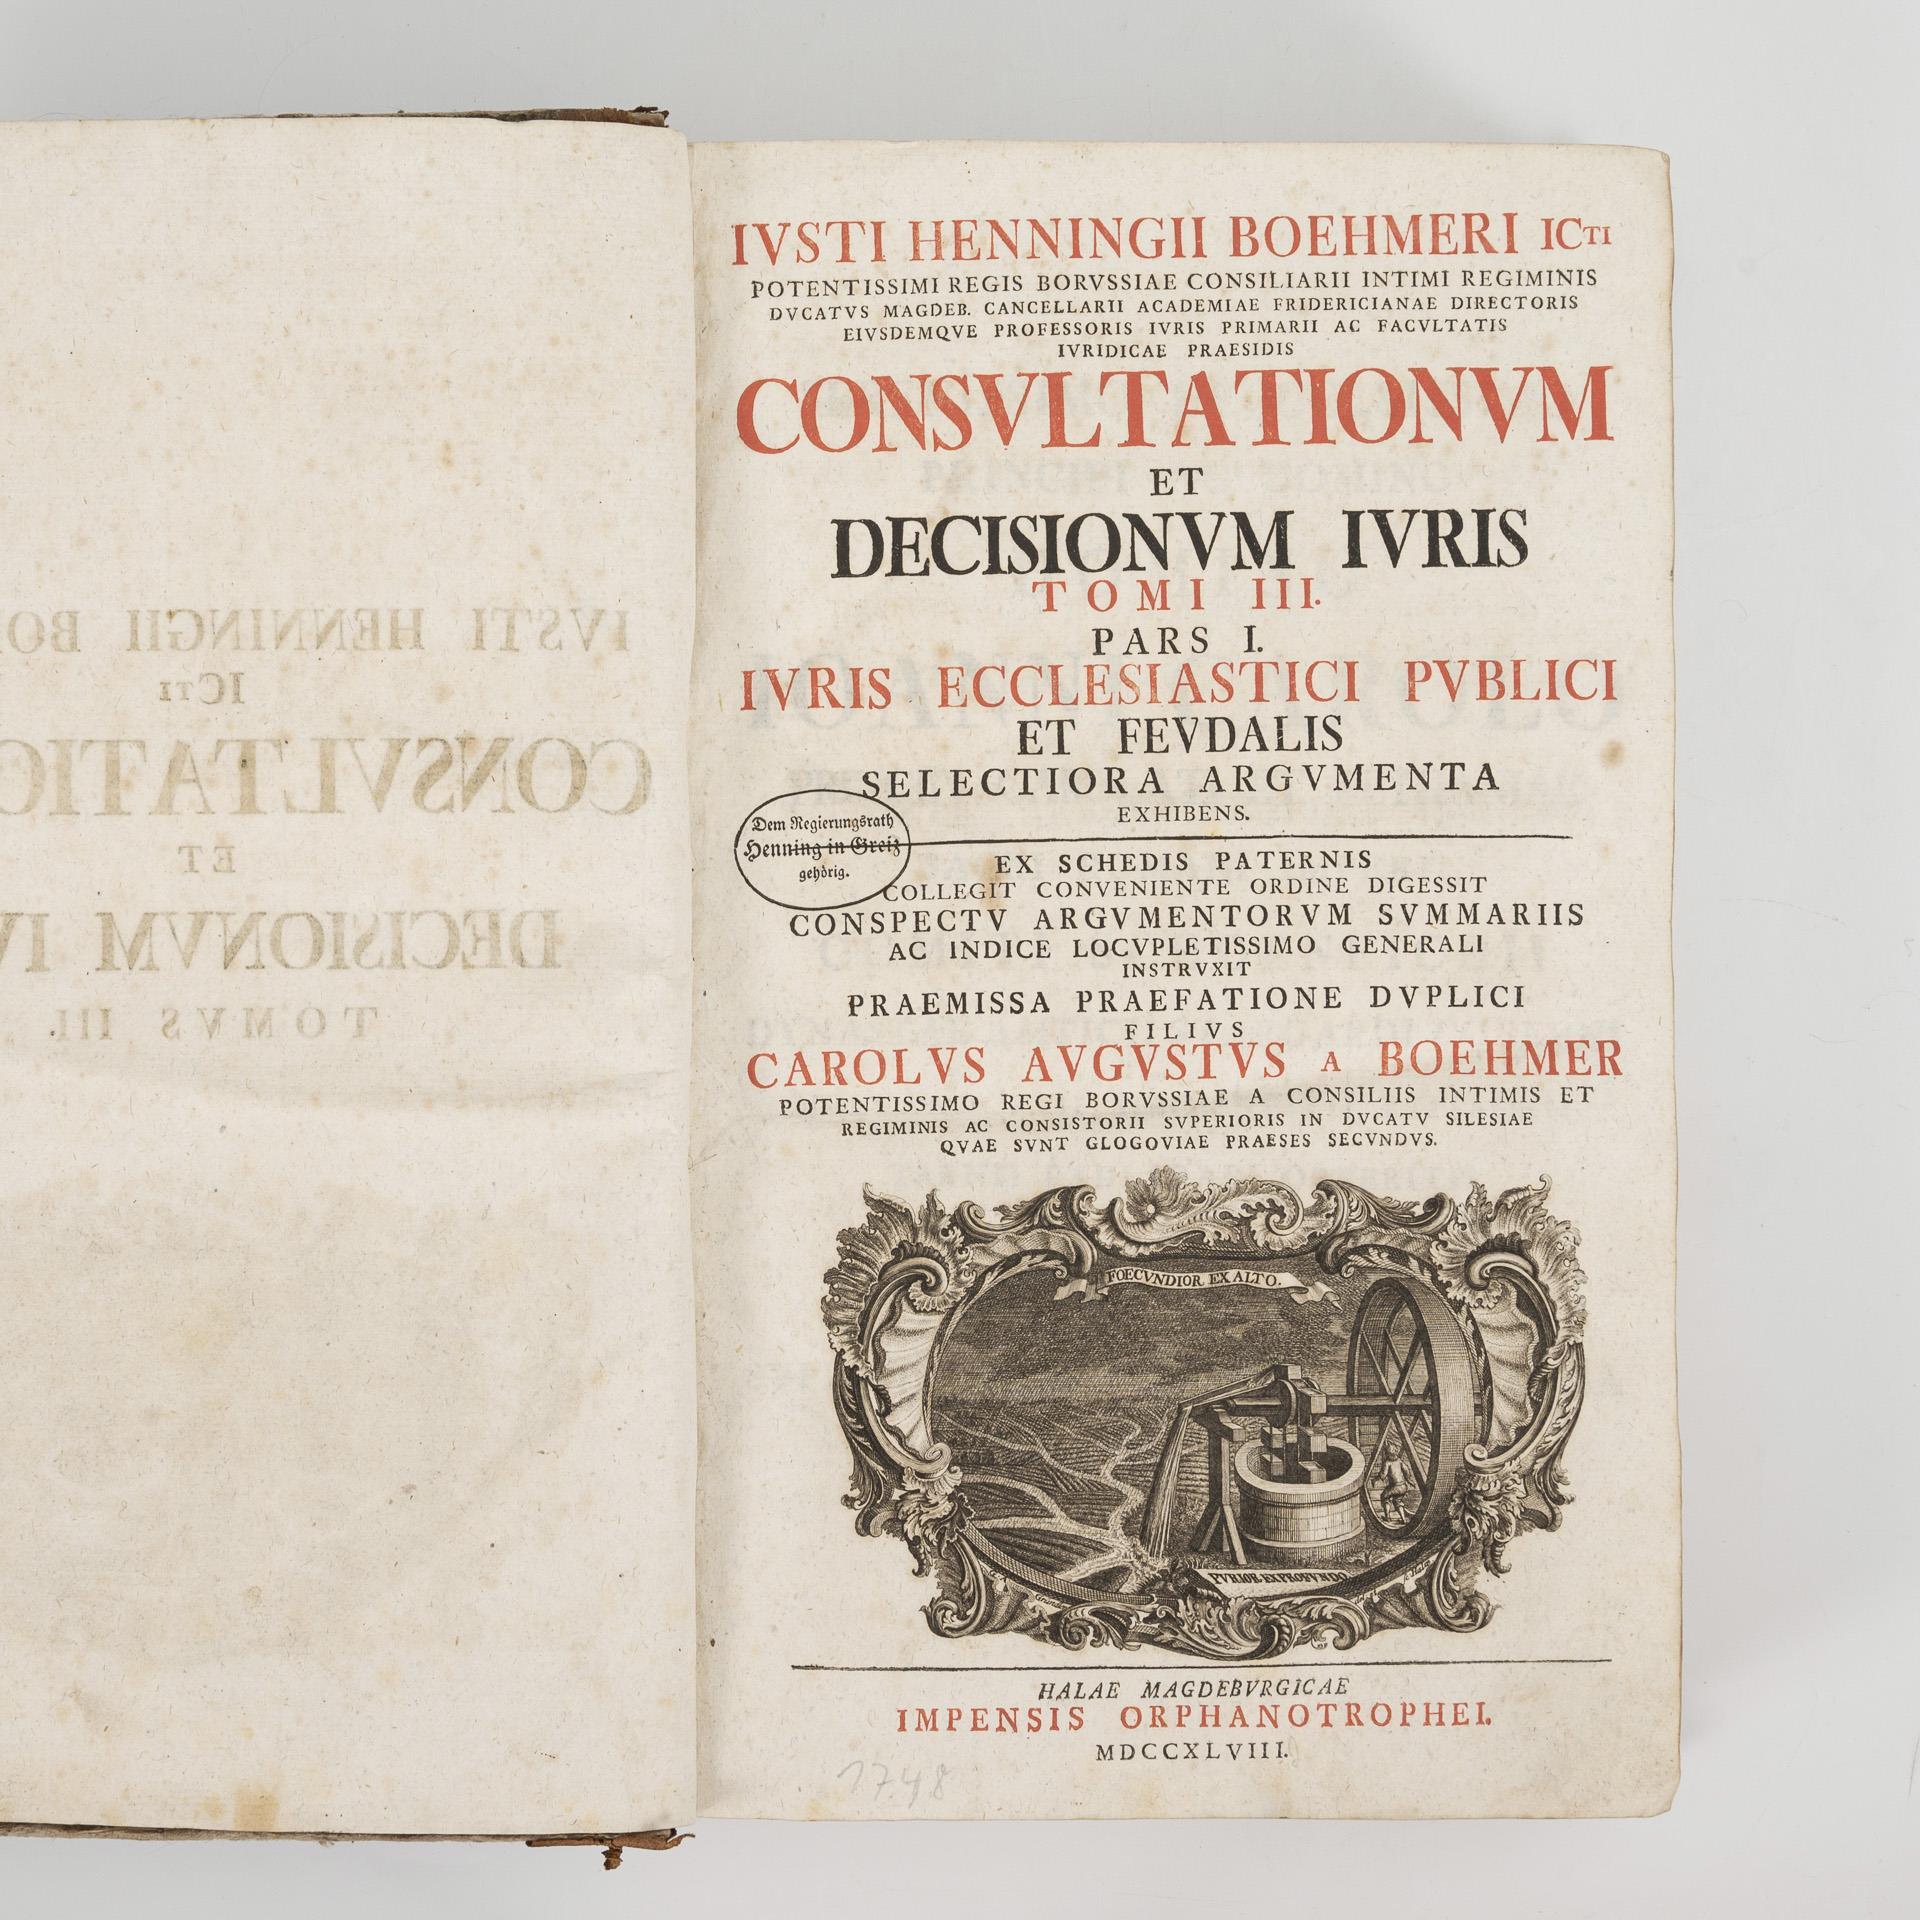 IVSTI HENNINGII BO
ICTI
CONSVLTATIO
ET
DECISIONVM IV
TOMVS III.
IVSTI HENNINGII BOEHMERI ICTI
POTENTISSIMI REGIS BORVSSIAE CONSILIARII INTIMI REGIMINIS
DVCATVS MAGDEB. CANCELLARII ACADEMIAE FRIDERICIANAE DIRECTORIS
EIVSDEMQVE PROFESSORIS IVRIS PRIMARII AC FACVLTATIS
IVRIDICAE PRAESIDIS
CONSVLTATIONVM
ET
DECISIONVM IVRIS
TOMI III.
PARS I.
IVRIS ECCLESIASTICI PVBLICI
ET FEVDALIS
SELECTIORA ARGVMENTA
EXHIBENS.
Dem Regierungsrath
Henning in Greiz
gehörig.
EX SCHEDIS PATERNIS
COLLEGIT CONVENIENTE ORDINE DIGESSIT
CONSPECTV ARGVMENTORVM SVMMARIIS
AC INDICE LOCVPLETISSIMO GENERALI
INSTRVXIT
PRAEMISSA PRAEFATIONE DVPLICI
FILIVS
CAROLVS AVGVSTVS A BOEHMER
POTENTISSIMO REGI BORVSSIAE A CONSILIIS INTIMIS ET
REGIMINIS AC CONSISTORII SVPERIORIS IN DVCATV SILESIAE
QVAE SVNT GLOGOVIAE PRAESES SECVNDVS.
FOECVNDIOR EX ALTO.
PVRIOR EX PROFVNDO
HALAE MAGDEBVRGICAE
IMPENSIS ORPHANOTROPHEI.
MDCCXLVIII.
1748